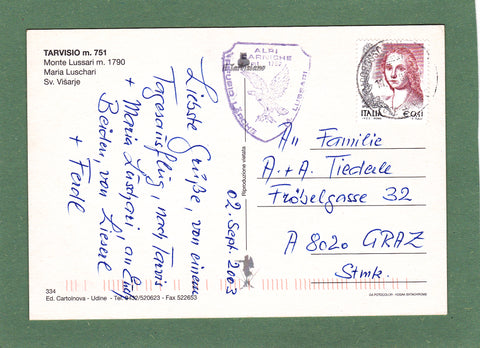 TARVISIO m. 751
Monte Lussari m. 1790
Maria Luschari
Sv. Višarje
Liebste Grüße, von einem
Tagesausflug, nach Tarvis
+ Maria Luschari, an Euch
Beiden, von Lieserl
+ Ferdl
02. Sept. 2003
Riproduzione vietata
ALPI
LUSSARI
ITALIA
€0,41
An Familie
A. + A. Tiederle
Fröbelgasse 32
A 8020 GRAZ
Stmk.
334
Ed. Cartolnova - Udine - Tel. 0432/520623 - Fax 522653